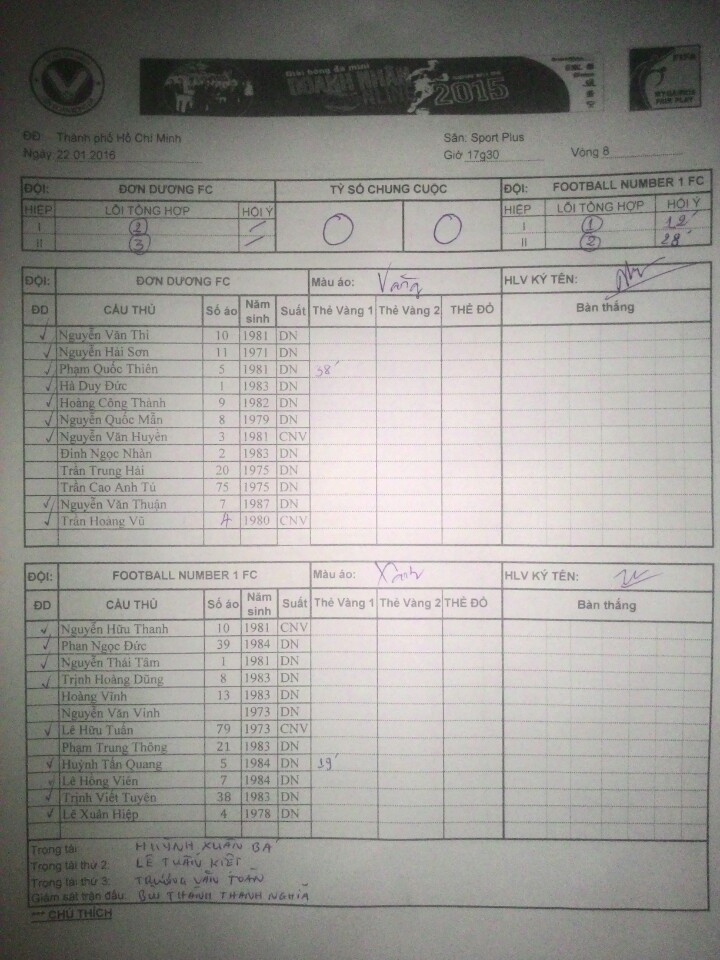 Giải bóng đá mini
DOANH NHÂN
2015
FIFA
MY GAME IS
FAIR PLAY
ĐĐ Thành phố Hồ Chí Minh Sân: Sport Plus
Ngày 22 01 2016 Giờ 17g30 Vòng 8
ĐỘI: ĐƠN DƯƠNG FC TỶ SỐ CHUNG CUỘC ĐỘI: FOOTBALL NUMBER 1 FC
HIỆP LỖI TỔNG HỢP HỘI Ý 0 0 HIỆP LỖI TỔNG HỢP HỘI Ý
I 2 I 1 12'
II 3 II 2 28'
ĐỘI: ĐƠN DƯƠNG FC Màu áo: Vàng HLV KÝ TÊN:
ĐD CẦU THỦ Số áo Năm sinh Suất Thẻ Vàng 1 Thẻ Vàng 2 THẺ ĐỎ Bàn thắng
✓ Nguyễn Văn Thi 10 1981 DN
✓ Nguyễn Hải Sơn 11 1971 DN
✓ Phạm Quốc Thiên 5 1981 DN 38'
✓ Hà Duy Đức 1 1983 DN
✓ Hoàng Công Thành 9 1982 DN
✓ Nguyễn Quốc Mẫn 8 1979 DN
✓ Nguyễn Văn Huyên 3 1981 CNV
Đinh Ngọc Nhàn 2 1983 DN
Trần Trung Hải 20 1975 DN
Trần Cao Anh Tú 75 1975 DN
✓ Nguyễn Văn Thuận 7 1987 DN
✓ Trần Hoàng Vũ 1980 CNV
ĐỘI: FOOTBALL NUMBER 1 FC Màu áo: Xanh HLV KÝ TÊN:
ĐD CẦU THỦ Số áo Năm sinh Suất Thẻ Vàng 1 Thẻ Vàng 2 THẺ ĐỎ Bàn thắng
✓ Nguyễn Hữu Thanh 10 1981 CNV
✓ Phan Ngọc Đức 39 1984 DN
✓ Nguyễn Thái Tâm 1 1981 DN
✓ Trịnh Hoàng Dũng 8 1983 DN
Hoàng Vĩnh 13 1983 DN
Nguyễn Văn Vinh 1973 DN
✓ Lê Hữu Tuấn 79 1973 CNV
Phạm Trung Thông 21 1983 DN
✓ Huỳnh Tấn Quang 5 1984 DN 19'
✓ Lê Hồng Viên 7 1984 DN
✓ Trịnh Viết Tuyên 38 1983 DN
✓ Lê Xuân Hiệp 4 1978 DN
Trọng tài: HUỲNH XUÂN BÁ
Trọng tài thứ 2: LÊ TUẤN KIỆT
Trọng tài thứ 3: TRƯƠNG VĂN TOÀN
Giám sát trận đấu: BÙI THANH THANH NGHĨA
*** CHÚ THÍCH